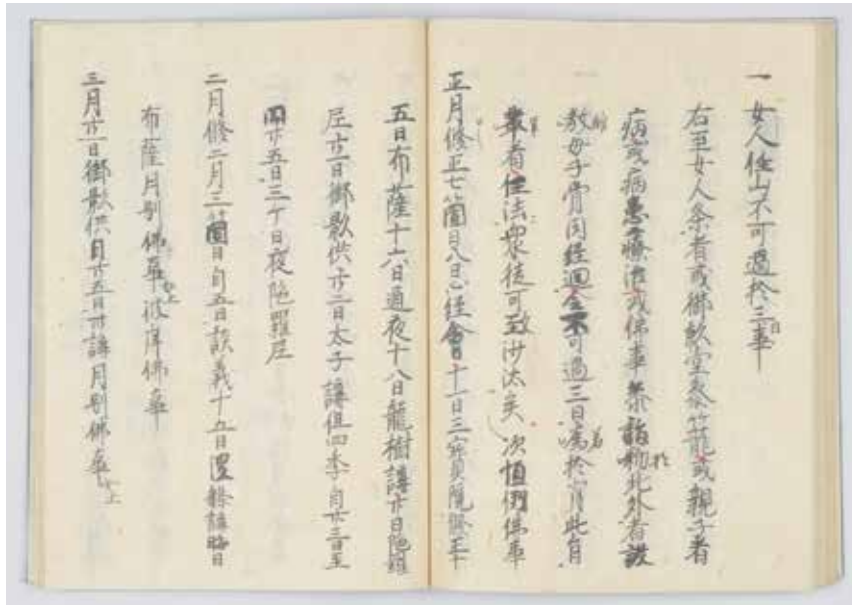 一 女人住山不可過於三日事
右至女人条者或御影堂参篭或親子看
病或病患療治或佛事参詣於此外者設
教母子骨肉経廻全不可過三日若於背此旨
輩者住法衆徒可致沙汰矣 次恒例佛事
正月修正七箇日八日心経會自十一日三
五日布薩十六日通夜十八日龍樹講廿日陀羅
尼廿一日御影供廿二日太子講但四季自廿三日至
廿五日三ケ日夜陀羅尼
二月修二月三箇日自五日談義十五日涅槃講晦日
布薩月別佛事已上彼岸佛事
三月廿一日御影供自廿五日廿講月別佛事已上